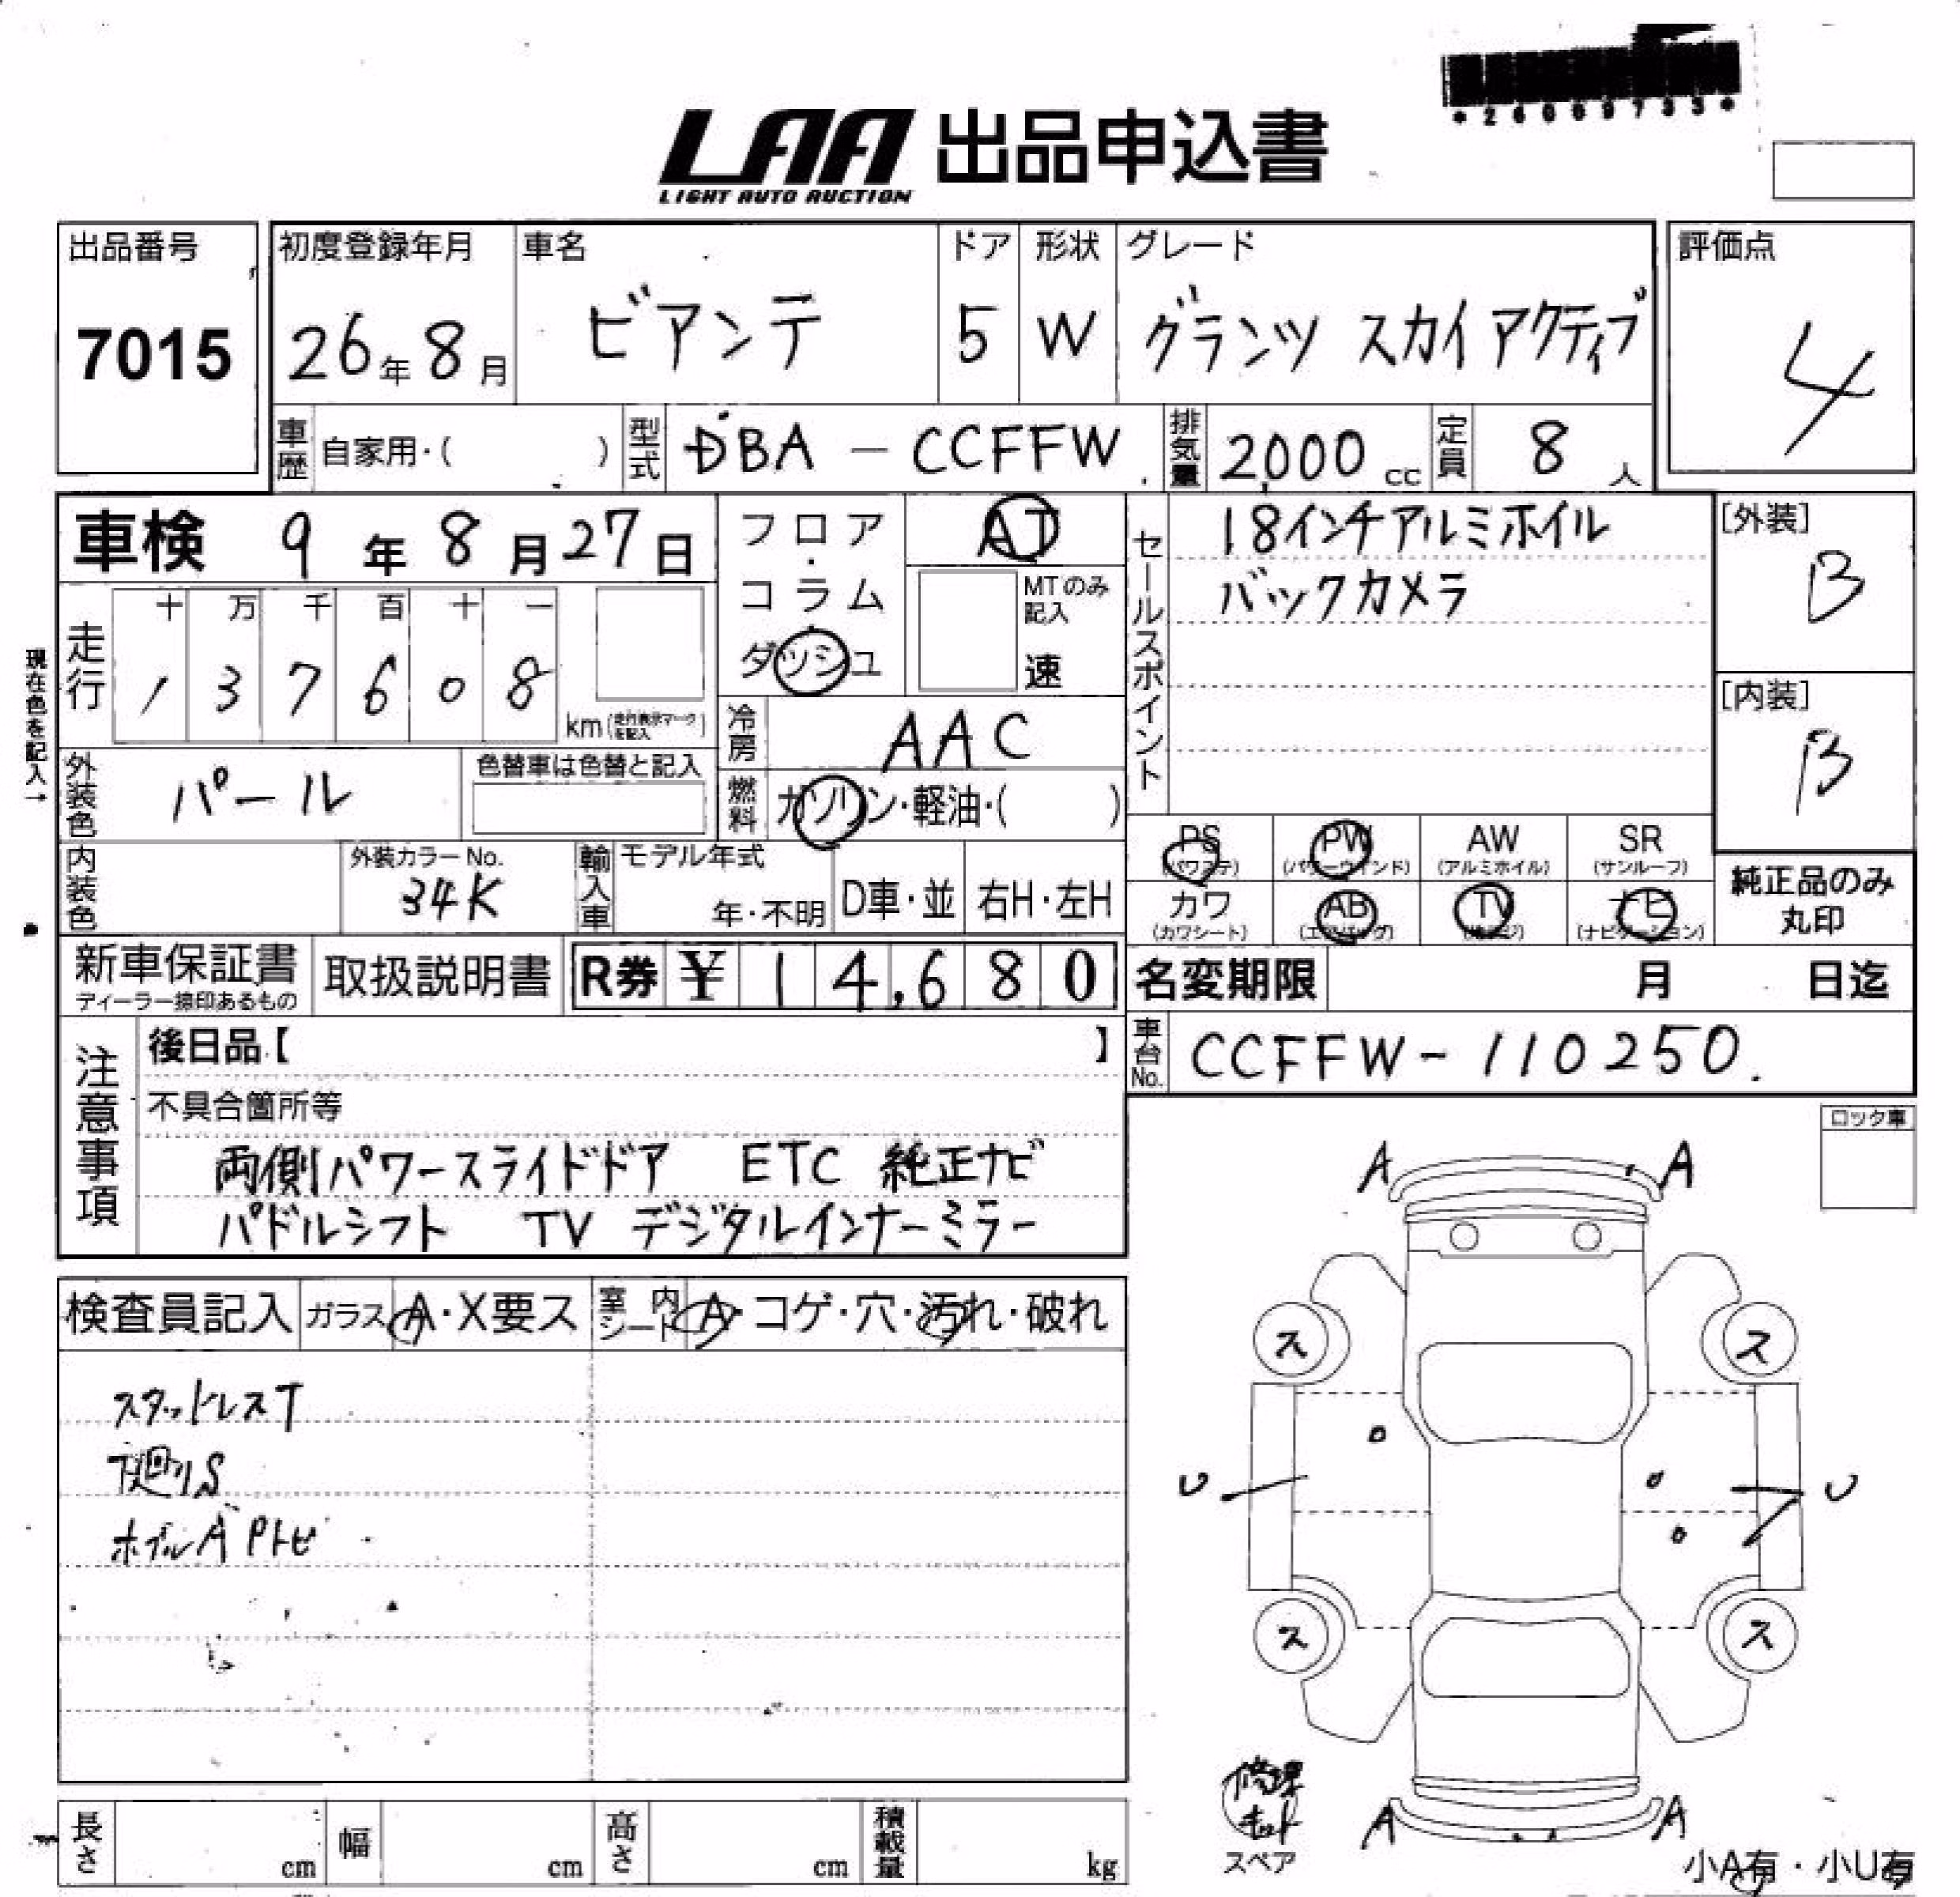 *26089733*
LAA 出品申込書
LIGHT AUTO AUCTION
出品番号 初度登録年月 車名 ドア 形状 グレード 評価点
7015 26年8月 ビアンテ 5 W グランツ スカイアクティブ 4
車歴 自家用・( ) 型式 DBA - CCFFW 排気量 2,000 cc 定員 8 人
車検 9年8月27日 フロア・コラム・ダッシュ AT
MTのみ記入 速
セールスポイント
18インチアルミホイル
バックカメラ
[外装] B
[内装] B
現在色を記入→
走行 十 万 千 百 十 一
1 3 7 6 0 8 km (走行表示マークを記入)
冷房 AAC
外装色 パール 色替車は色替と記入
燃料 ガソリン・軽油・( )
内装色 外装カラーNo. 34K 輸入車 モデル年式 年・不明 D車・並 右H・左H
PS (パワステ) PW (パワーウインド) AW (アルミホイル) SR (サンルーフ)
カワ (カワシート) AB (エアバッグ) TV ナビ (ナビゲーション)
純正品のみ丸印
新車保証書 ディーラー捺印あるもの 取扱説明書 R券 ¥14,680
名変期限 月 日迄
車台No. CCFFW-110250.
注意事項
後日品【 】
不具合箇所等
両側パワースライドドア ETC 純正ナビ
パドルシフト TV デジタルインナーミラー
ロック車
検査員記入 ガラス A・X要ス 室内シート A・コゲ・穴・汚れ・破れ
スタッドレスT
下廻りS
ホイルA Pトビ
A A
ス ス
U U
ス ス
A A
修理キット
スペア
小A有・小U有
長さ cm 幅 cm 高さ cm 積載量 kg